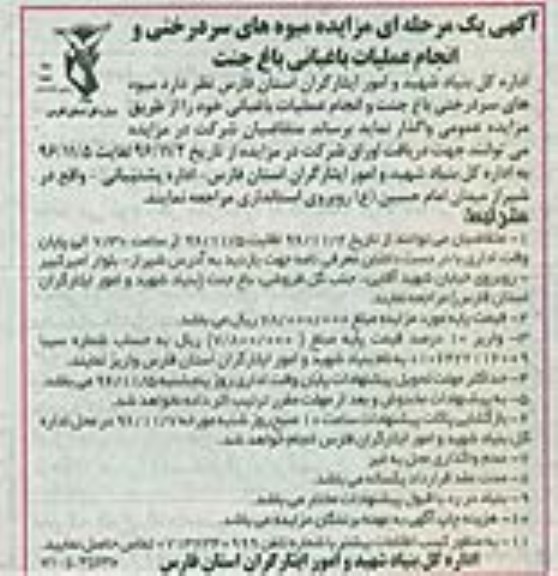 آگهی یک مرحله ای مزایده میوه های سردرختی و
انجام عملیات باغبانی باغ جنت
اداره کل بنیاد شهید و امور ایثارگران استان فارس نظر دارد میوه
های سردرختی باغ جنت و انجام عملیات باغبانی خود را از طریق
مزایده عمومی واگذار نماید برساند متقاضیان شرکت در مزایده
می توانند جهت دریافت اوراق شرکت در مزایده از تاریخ ۹۶/۱۱/۲ لغایت ۹۶/۱۱/۵
به اداره کل بنیاد شهید و امور ایثارگران استان فارس - اداره پشتیبانی - واقع در
شیراز میدان امام حسین (ع) روبروی استانداری مراجعه نمایند.
شرایط:
۱- متقاضیان می توانند از تاریخ لغایت از ساعت الی پایان
وقت اداری با در دست داشتن معرفی نامه جهت بازدید به آدرس شیراز - بلوار امیرکبیر
- روبروی خیابان شهید آقایی، جنب گل فروشی، باغ جنت (بنیاد شهید و امور ایثارگران
استان فارس) مراجعه نمایند.
۲- قیمت پایه مورد مزایده مبلغ ۷۸/۰۰۰/۰۰۰ ریال می باشد.
۳- واریز ۱۰ درصد قیمت پایه مبلغ (۷/۸۰۰/۰۰۰) ریال به حساب شماره سیبا
به نام بنیاد شهید و امور ایثارگران استان فارس واریز نمایند.
۴- حداکثر مهلت تحویل پیشنهادات پایان وقت اداری روز پنجشنبه می باشد.
۵- به پیشنهادات مخدوش و بعد از مهلت مقرر ترتیب اثر داده نخواهد شد.
۶- بازگشایی پاکات پیشنهادات ساعت ۱۰ صبح روز شنبه مورخه در محل اداره
کل بنیاد شهید و امور ایثارگران فارس انجام خواهد شد.
۷- عدم واگذاری محل به غیر
۸- مدت عقد قرارداد یکساله می باشد.
۹- بنیاد در رد یا قبول پیشنهادات مختار می باشد.
۱۰- هزینه چاپ آگهی به عهده برندگان مزایده می باشد.
۱۱- به منظور کسب اطلاعات بیشتر با شماره تلفن تماس حاصل نمایید.
اداره کل بنیاد شهید و امور ایثارگران استان فارس